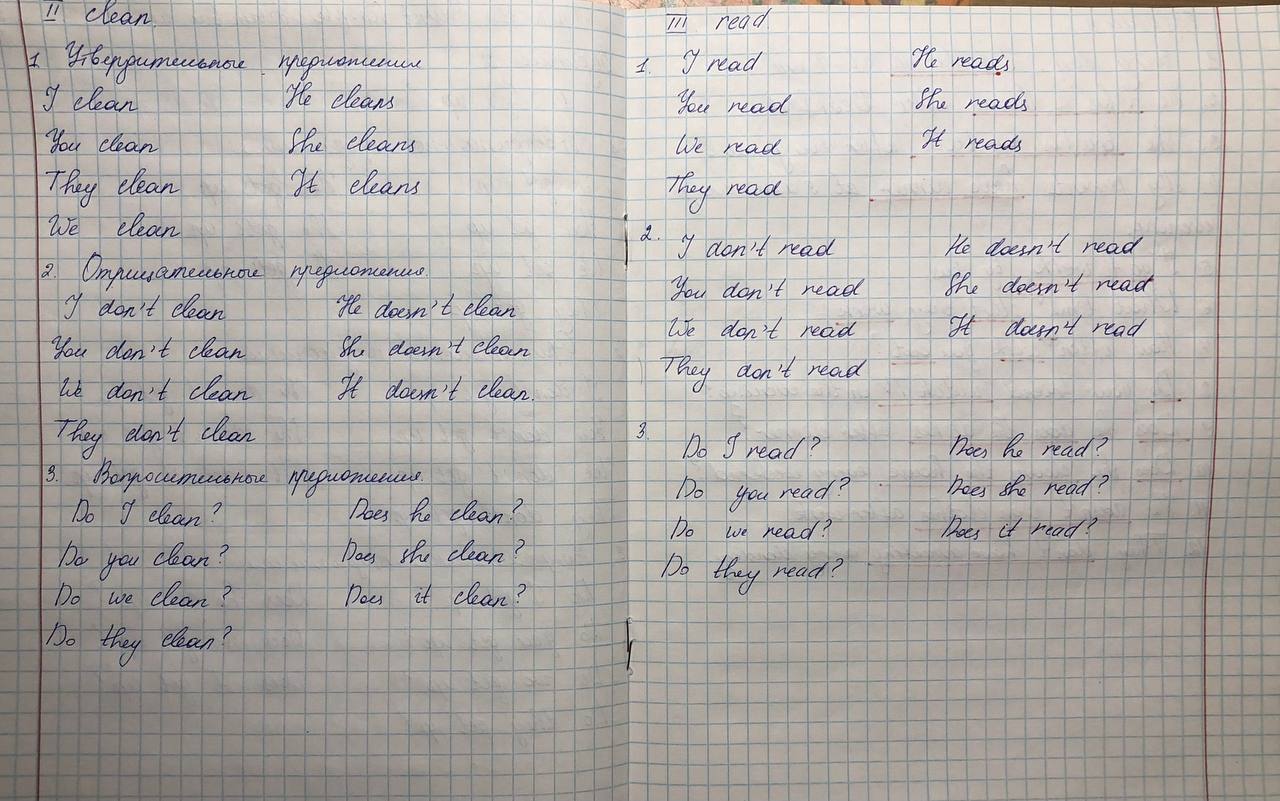 II clean.
1 Утвердительные предложения
I clean He cleans
You clean She cleans
They clean It cleans
We clean
2. Отрицательные предложения.
I don't clean He doesn't clean
You don't clean She doesn't clean
We don't clean It doesn't clean.
They don't clean
3. Вопросительные предложения.
Do I clean? Does he clean?
Do you clean? Does she clean?
Do we clean? Does it clean?
Do they clean?
III read
1. I read He reads
You read She reads
We read It reads
They read
2. I don't read He doesn't read
You don't read She doesn't read
We don't read It doesn't read
They don't read
3. Do I read? Does he read?
Do you read? Does she read?
Do we read? Does it read?
Do they read?